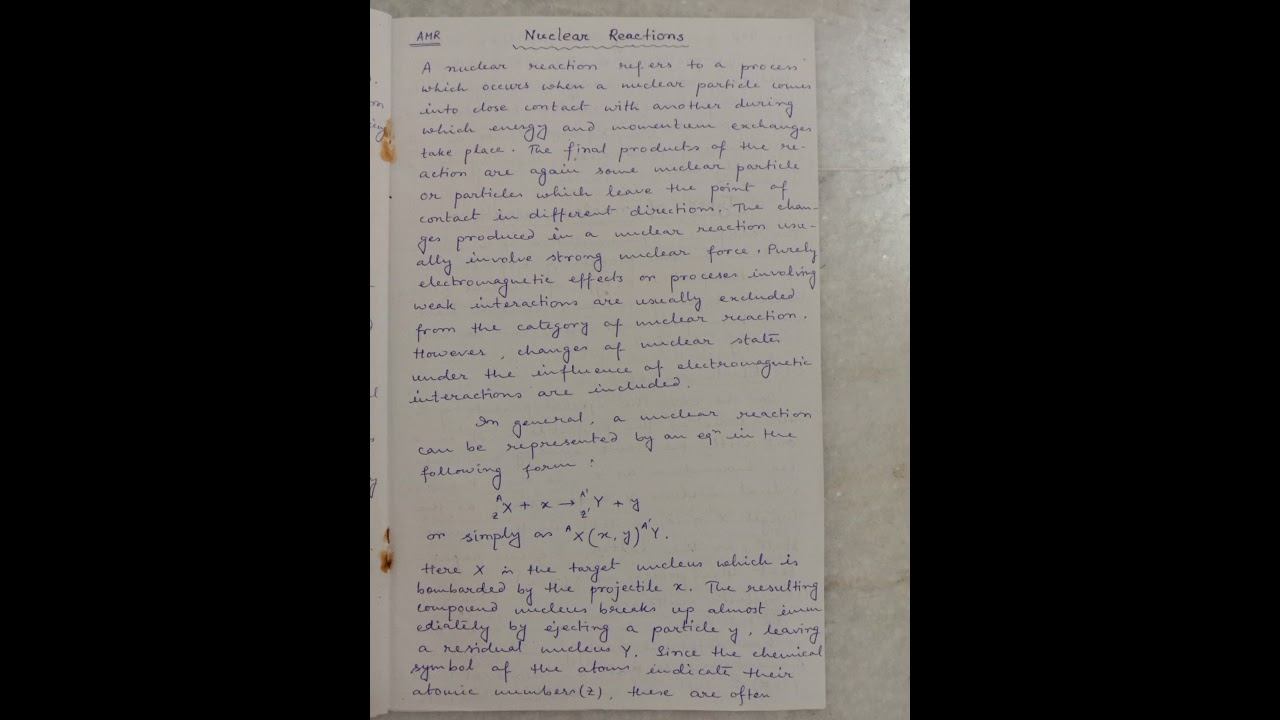 AMR
Nuclear Reactions
A nuclear reaction refers to a process
which occurs when a nuclear particle comes
into close contact with another during
which energy and momentum exchanges
take place. The final products of the re-
action are again some nuclear particle
or particles which leave the point of
contact in different directions. The chan-
ges produced in a nuclear reaction usu-
ally involve strong nuclear force. Purely
electromagnetic effects or proceses involving
weak interactions are usually excluded
from the category of nuclear reaction.
However, changes of nuclear states
under the influence of electromagnetic
interactions are included.
In general, a nuclear reaction
can be represented by an eqⁿ in the
following form :
ᴬ_Z X + x → ᴬ'_Z' Y + y
or simply as ᴬX(x, y)ᴬ'Y.
Here X is the target nucleus which is
bombarded by the projectile x. The resulting
compound nucleus breaks up almost imm
ediately by ejecting a particle y, leaving
a residual nucleus Y. Since the chemical
symbol of the atoms indicate their
atomic numbers(Z), these are often